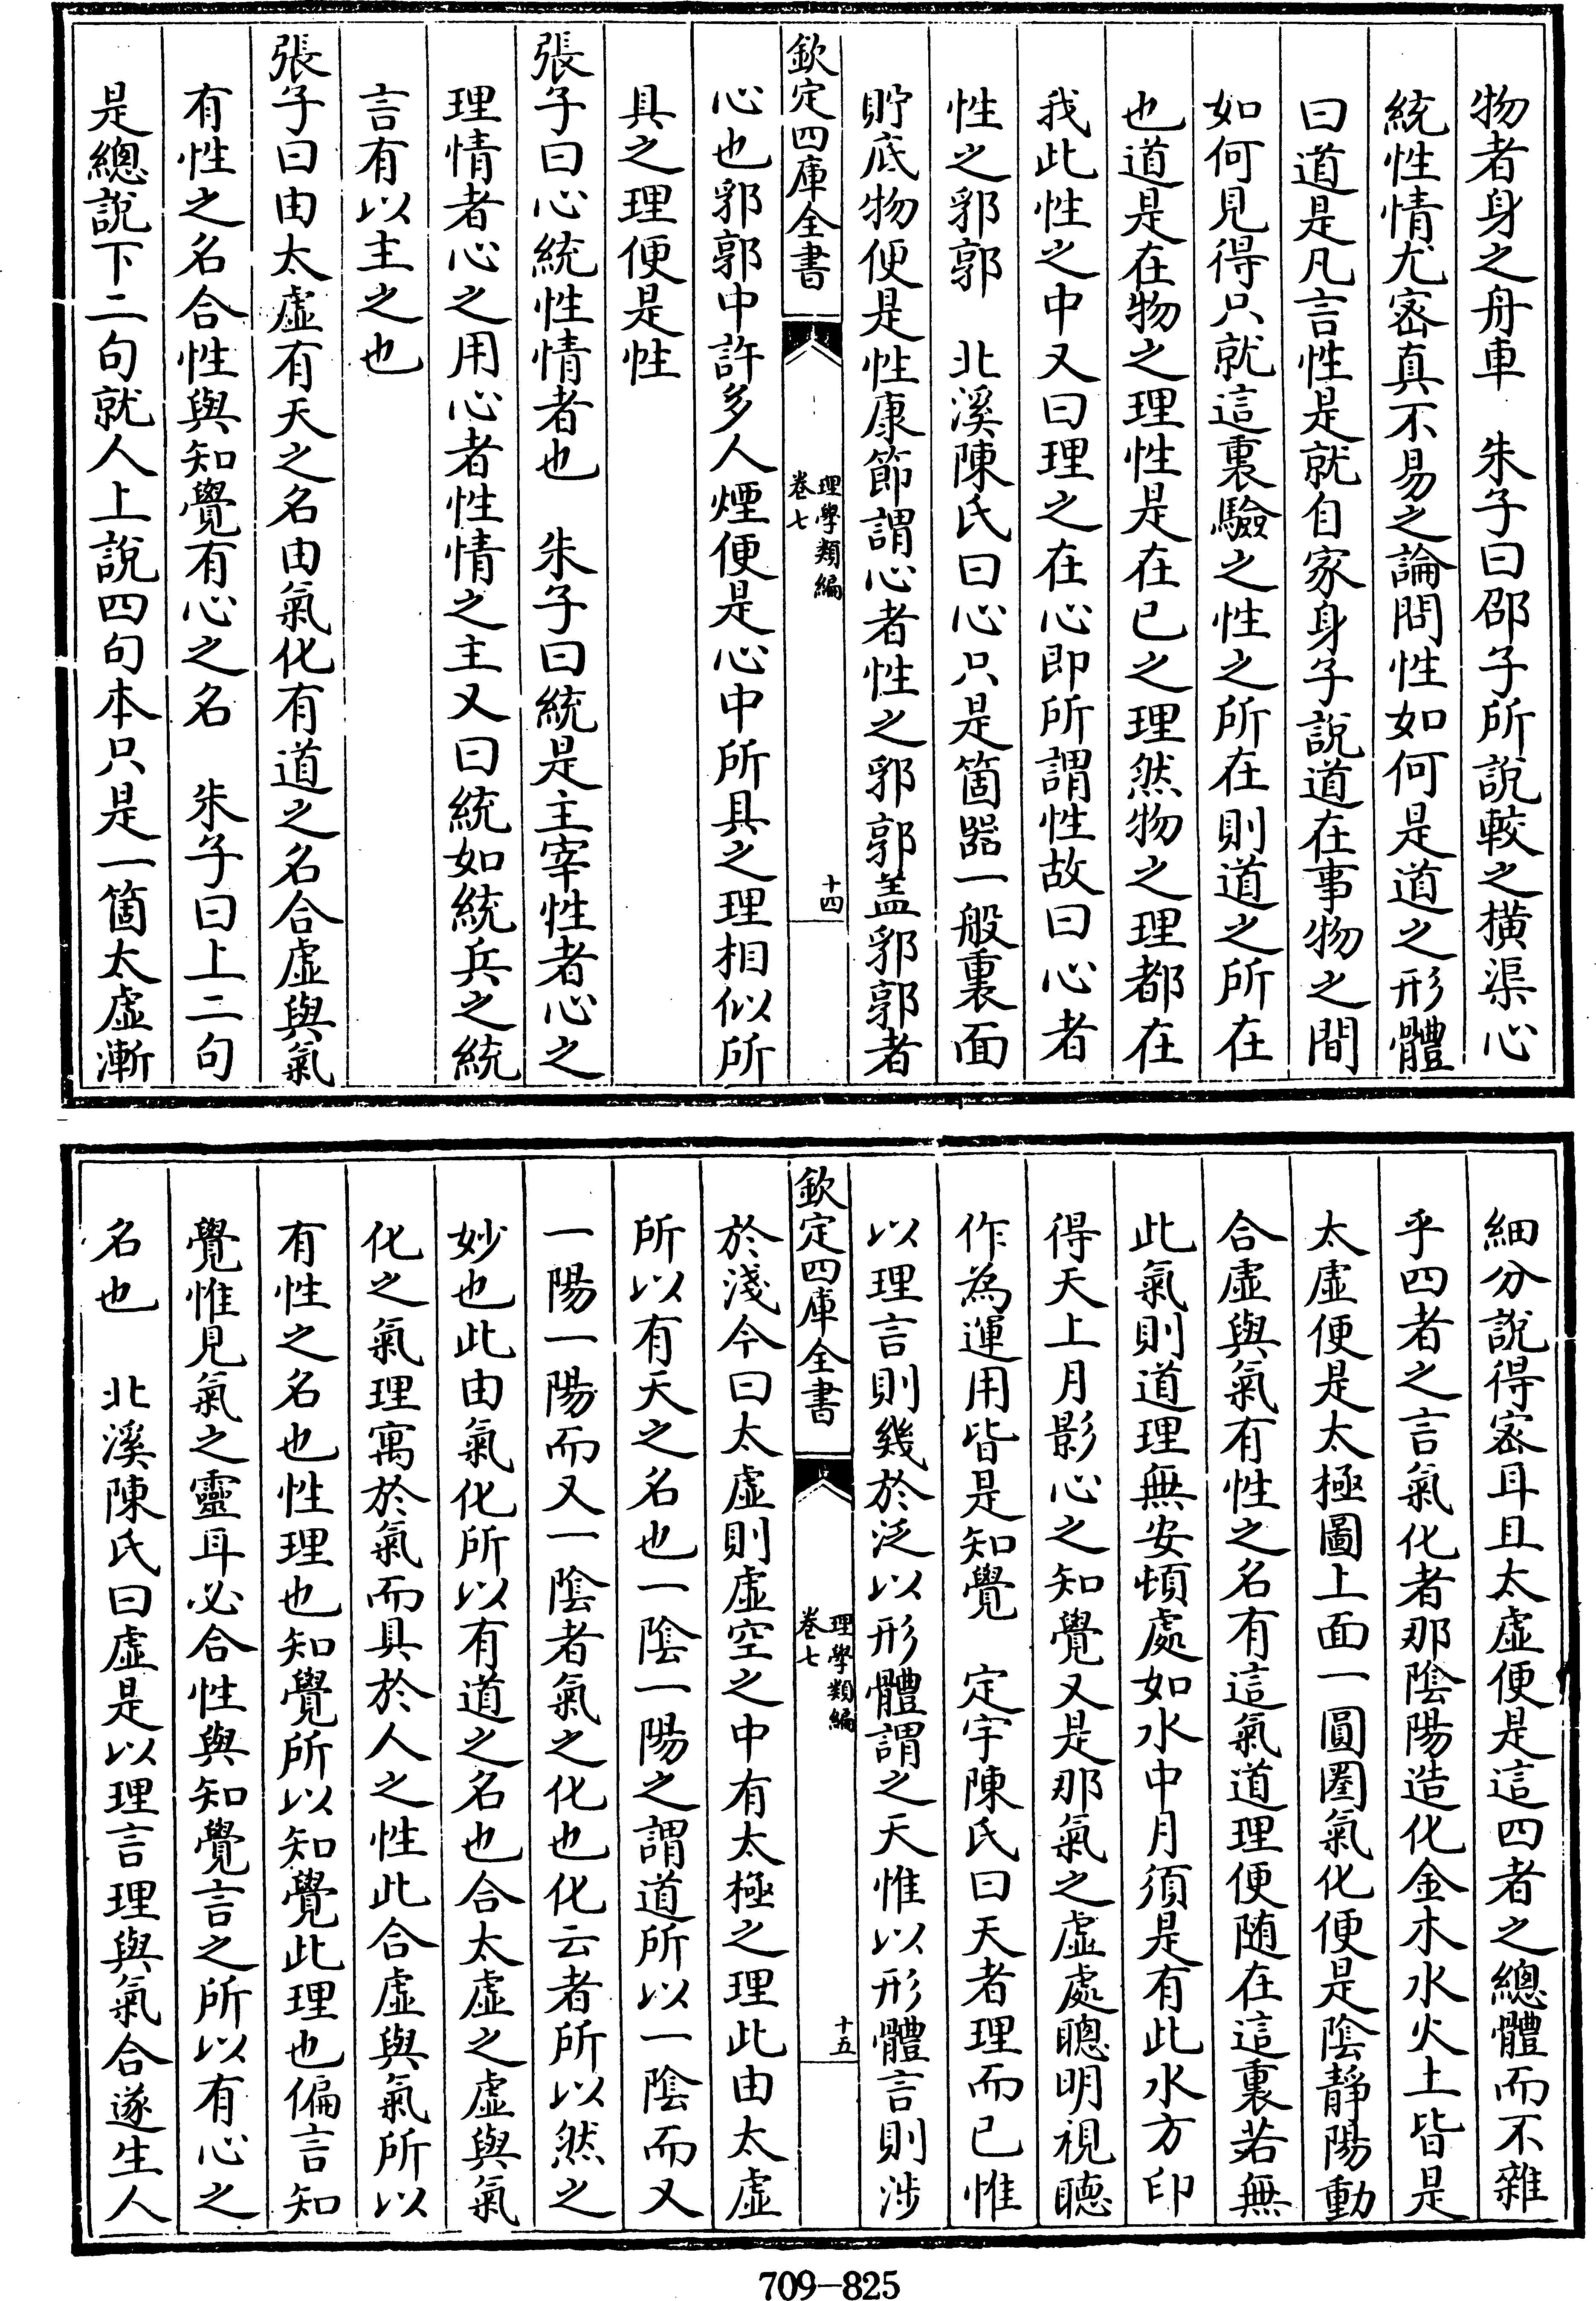 物者身之舟車　朱子曰邵子所說較之橫渠心
統性情尤宻真不易之論問性如何是道之形體
曰道是凡言性是就自家身子說道在事物之間
如何見得只就這裏驗之性之所在則道之所在
也道是在物之理性是在已之理然物之理都在
我此性之中又曰理之在心即所謂性故曰心者
性之郛郭　北溪陳氏曰心只是箇器一般裏面
貯底物便是性康節謂心者性之郛郭盖郛郭者
欽定四庫全書
理學類編
卷七
十四
心也郛郭中許多人煙便是心中所具之理相似所
具之理便是性
張子曰心統性情者也　朱子曰統是主宰性者心之
理情者心之用心者性情之主又曰統如統兵之統
言有以主之也
張子曰由太虛有天之名由氣化有道之名合虛與氣
有性之名合性與知覺有心之名　朱子曰上二句
是總說下二句就人上說四句本只是一箇太虛漸
細分說得宻耳且太虛便是這四者之總體而不雜
乎四者之言氣化者那隂陽造化金木水火土皆是
太虛便是太極圖上面一圓圏氣化便是隂靜陽動
合虛與氣有性之名有這氣道理便随在這裏若無
此氣則道理無安頓處如水中月須是有此水方印
得天上月影心之知覺又是那氣之虛處聰明視聽
作為運用皆是知覺　定宇陳氏曰天者理而已惟
以理言則幾於泛以形體謂之天惟以形體言則涉
欽定四庫全書
理學類編
卷七
十五
於淺今曰太虛則虛空之中有太極之理此由太虛
所以有天之名也一隂一陽之謂道所以一隂而又
一陽一陽而又一隂者氣之化也化云者所以然之
妙也此由氣化所以有道之名也合太虛之虛與氣
化之氣理寓於氣而具於人之性此合虛與氣所以
有性之名也性理也知覺所以知覺此理也偏言知
覺惟見氣之靈耳必合性與知覺言之所以有心之
名也　北溪陳氏曰虛是以理言理與氣合遂生人
709-825